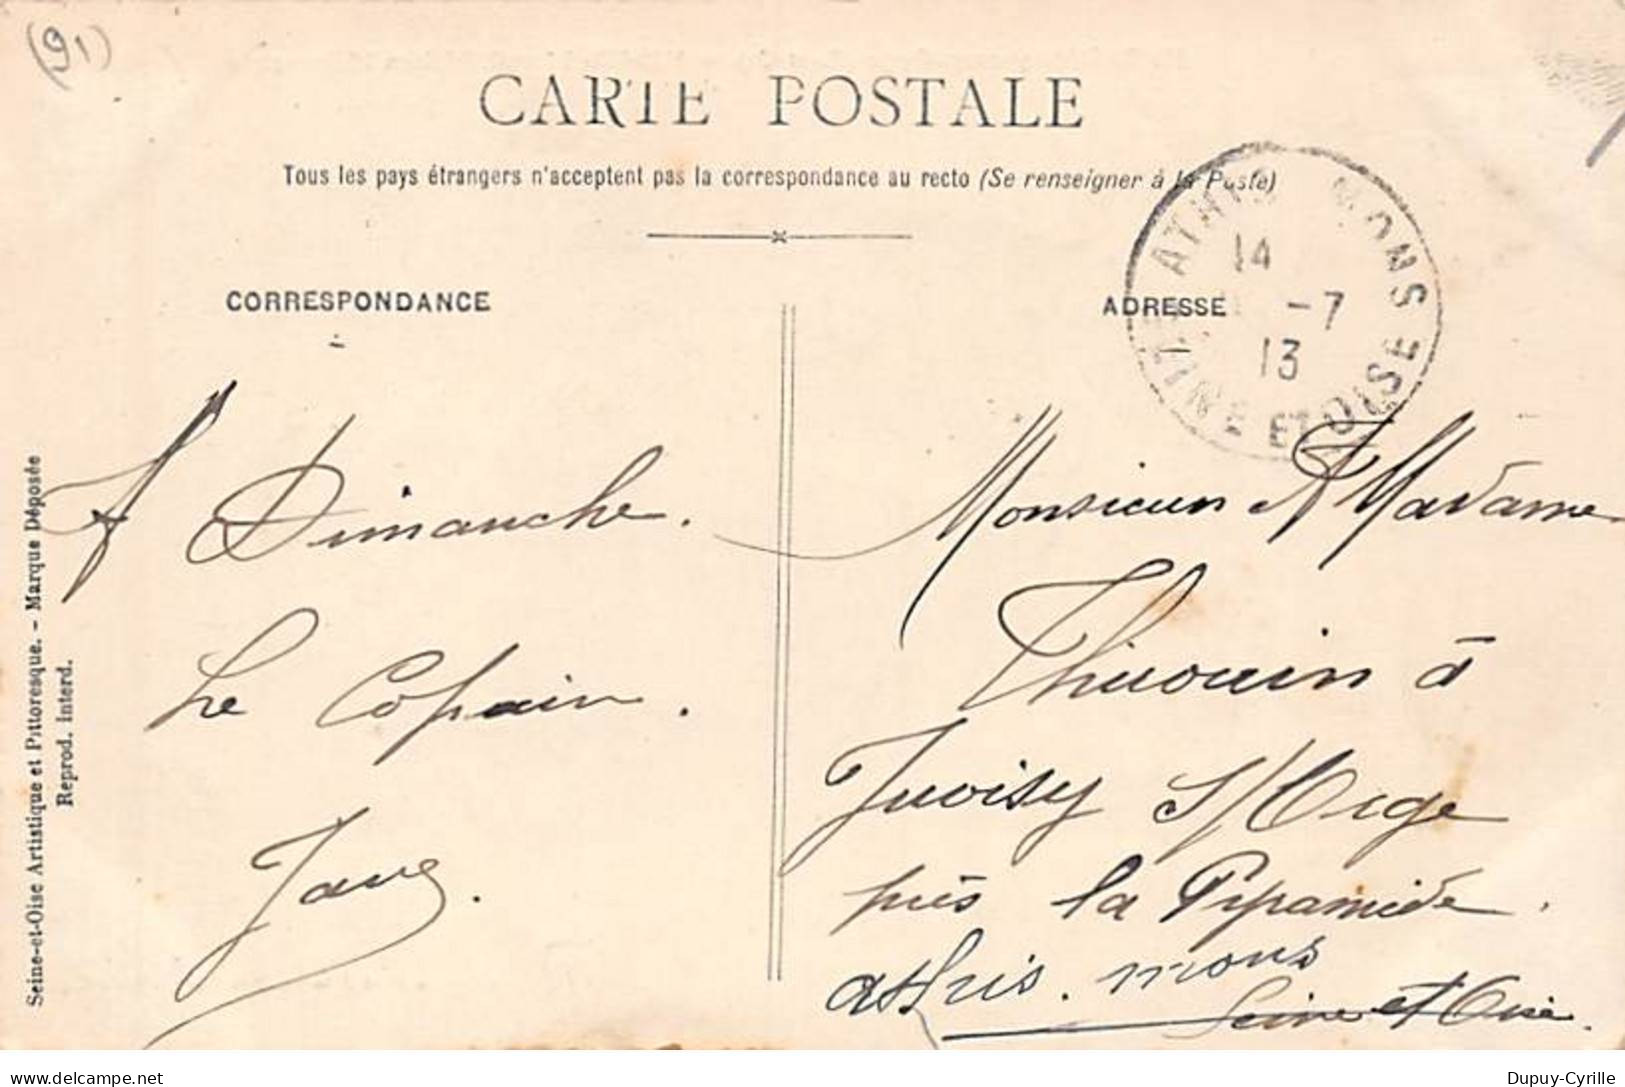 (91)
CARTE POSTALE
Tous les pays étrangers n'acceptent pas la correspondance au recto (Se renseigner à la Poste)
CORRESPONDANCE
A Dimanche.
Le Copain.
ADRESSE
ATHIS MONS
14 -7
13
SEINE ET OISE
Monsieur & Madame
Thirouin à
Juvisy s/Orge
près la Pyramide.
athis. mons
Seine et Oise.
Seine-et-Oise Artistique et Pittoresque. - Marque Déposée
Reprod. Interd.
delcampe.net
Dupuy-Cyrille